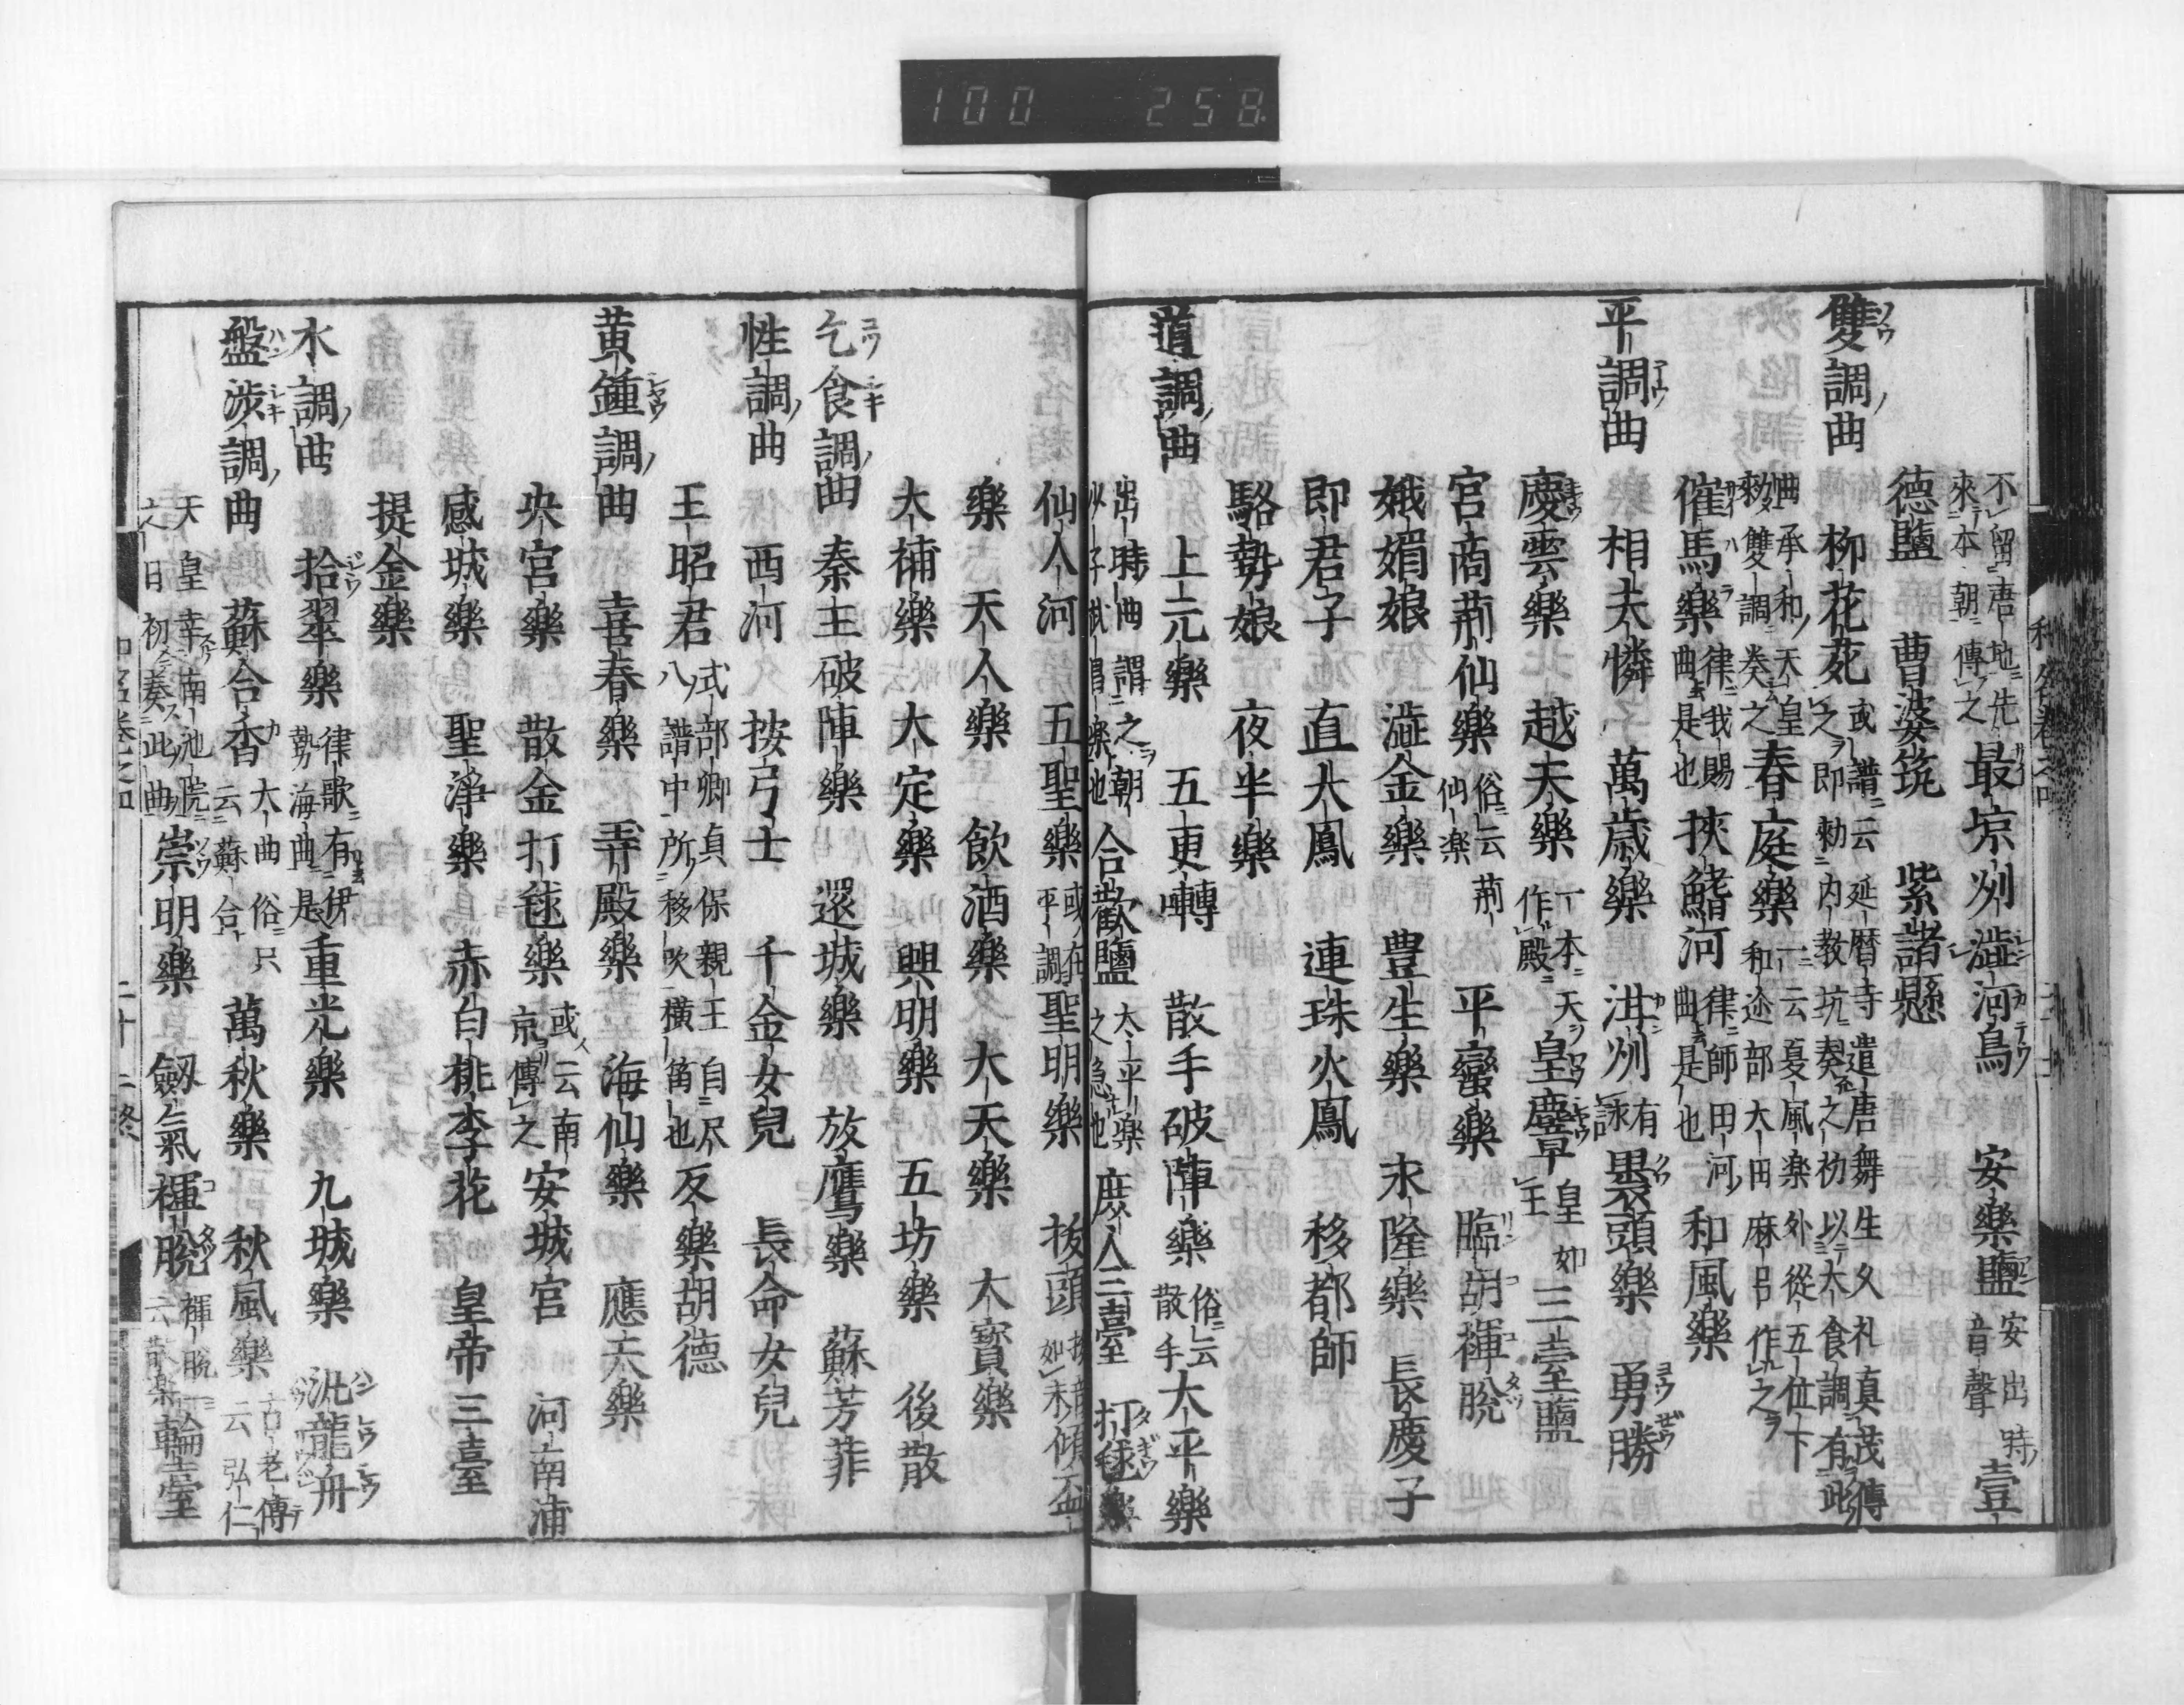 100 258
不留唐地先
來本朝傳之
最凉州 澁河鳥 安樂鹽
安出時
音聲
壹
德鹽 曹婆 筑紫諸縣
雙調曲
柳花苑
或譜云延暦寺遣唐舞生久礼真茂傳
之即勅内教坊奏之初以大食調有此
曲承和天皇
勅雙調奏之
春庭樂
一云夏風楽外從五位下
和迩部大田麻呂作之
催馬樂
律我賜
曲是也
挾鰭河
律師田河
曲是也
和風樂
平調曲
相夫憐 萬歳樂 洪州
有
詠
褁頭樂 勇勝
慶雲樂 越天樂
一本天
作殿
皇麞
皇如
王
三臺鹽
宮商荊仙樂
俗云荊
仙楽
平蠻樂 臨胡褌脱
娥媚娘 澁金樂 豊生樂 永隆樂 長慶子
即君子 直火鳳 連珠火鳳 移都師
駱勢娘 夜半樂
道調曲
上元樂 五更囀 散手破陣樂
俗云
散手
太平樂
出時曲謂之朝
合歡鹽
太平楽
之急也
庶人三臺 打毬樂
仙人河 五聖樂
或在
平調
聖明樂 抜頭
傾盃
樂 天人樂 飲酒樂 大天樂 大寳樂
大補樂 大定樂 興明樂 五坊樂 後散
乞食調曲
秦王破陣樂 還城樂 放鷹樂 蘇芳菲
性調曲
西河 按弓士 千金女兒 長命女兒
王昭君
式部卿貞保親王自尺
八譜中所移吹横笛也
反樂胡德
黄鍾調曲
喜春樂 弄殿樂 海仙樂 應天樂
央宮樂 散金打毬樂
或云南
京傳之
安城官 河南浦
感城樂 聖淨樂 赤白桃李花 皇帝三臺
提金樂
水調曲
拾翠樂
律歌有伊
勢海曲是
重光樂 九城樂 汎龍舟
盤渉調曲
蘇合香
大曲俗只
云蘇合
萬秋樂 秋風樂
古老傳
云弘仁
天皇幸南池院
之日初奏此曲
崇明樂 劔氣褌脱
褌脱
云散楽
輪臺
二十二終